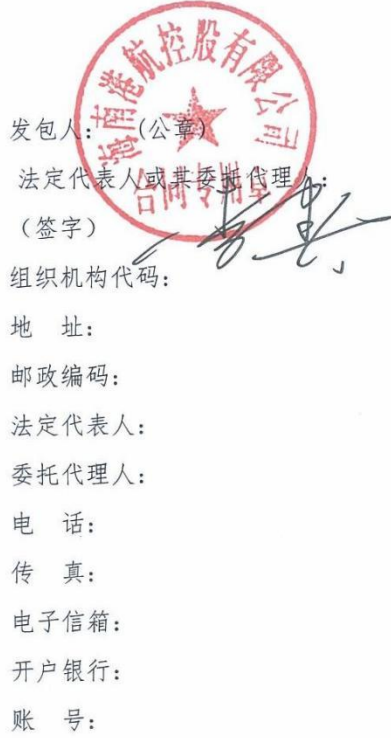 海南港航控股有限公司
合同专用章
发包人： （公章）
法定代表人或其委托代理人：
（签字）
组织机构代码：
地 址：
邮政编码：
法定代表人：
委托代理人：
电 话：
传 真：
电子信箱：
开户银行：
账 号：